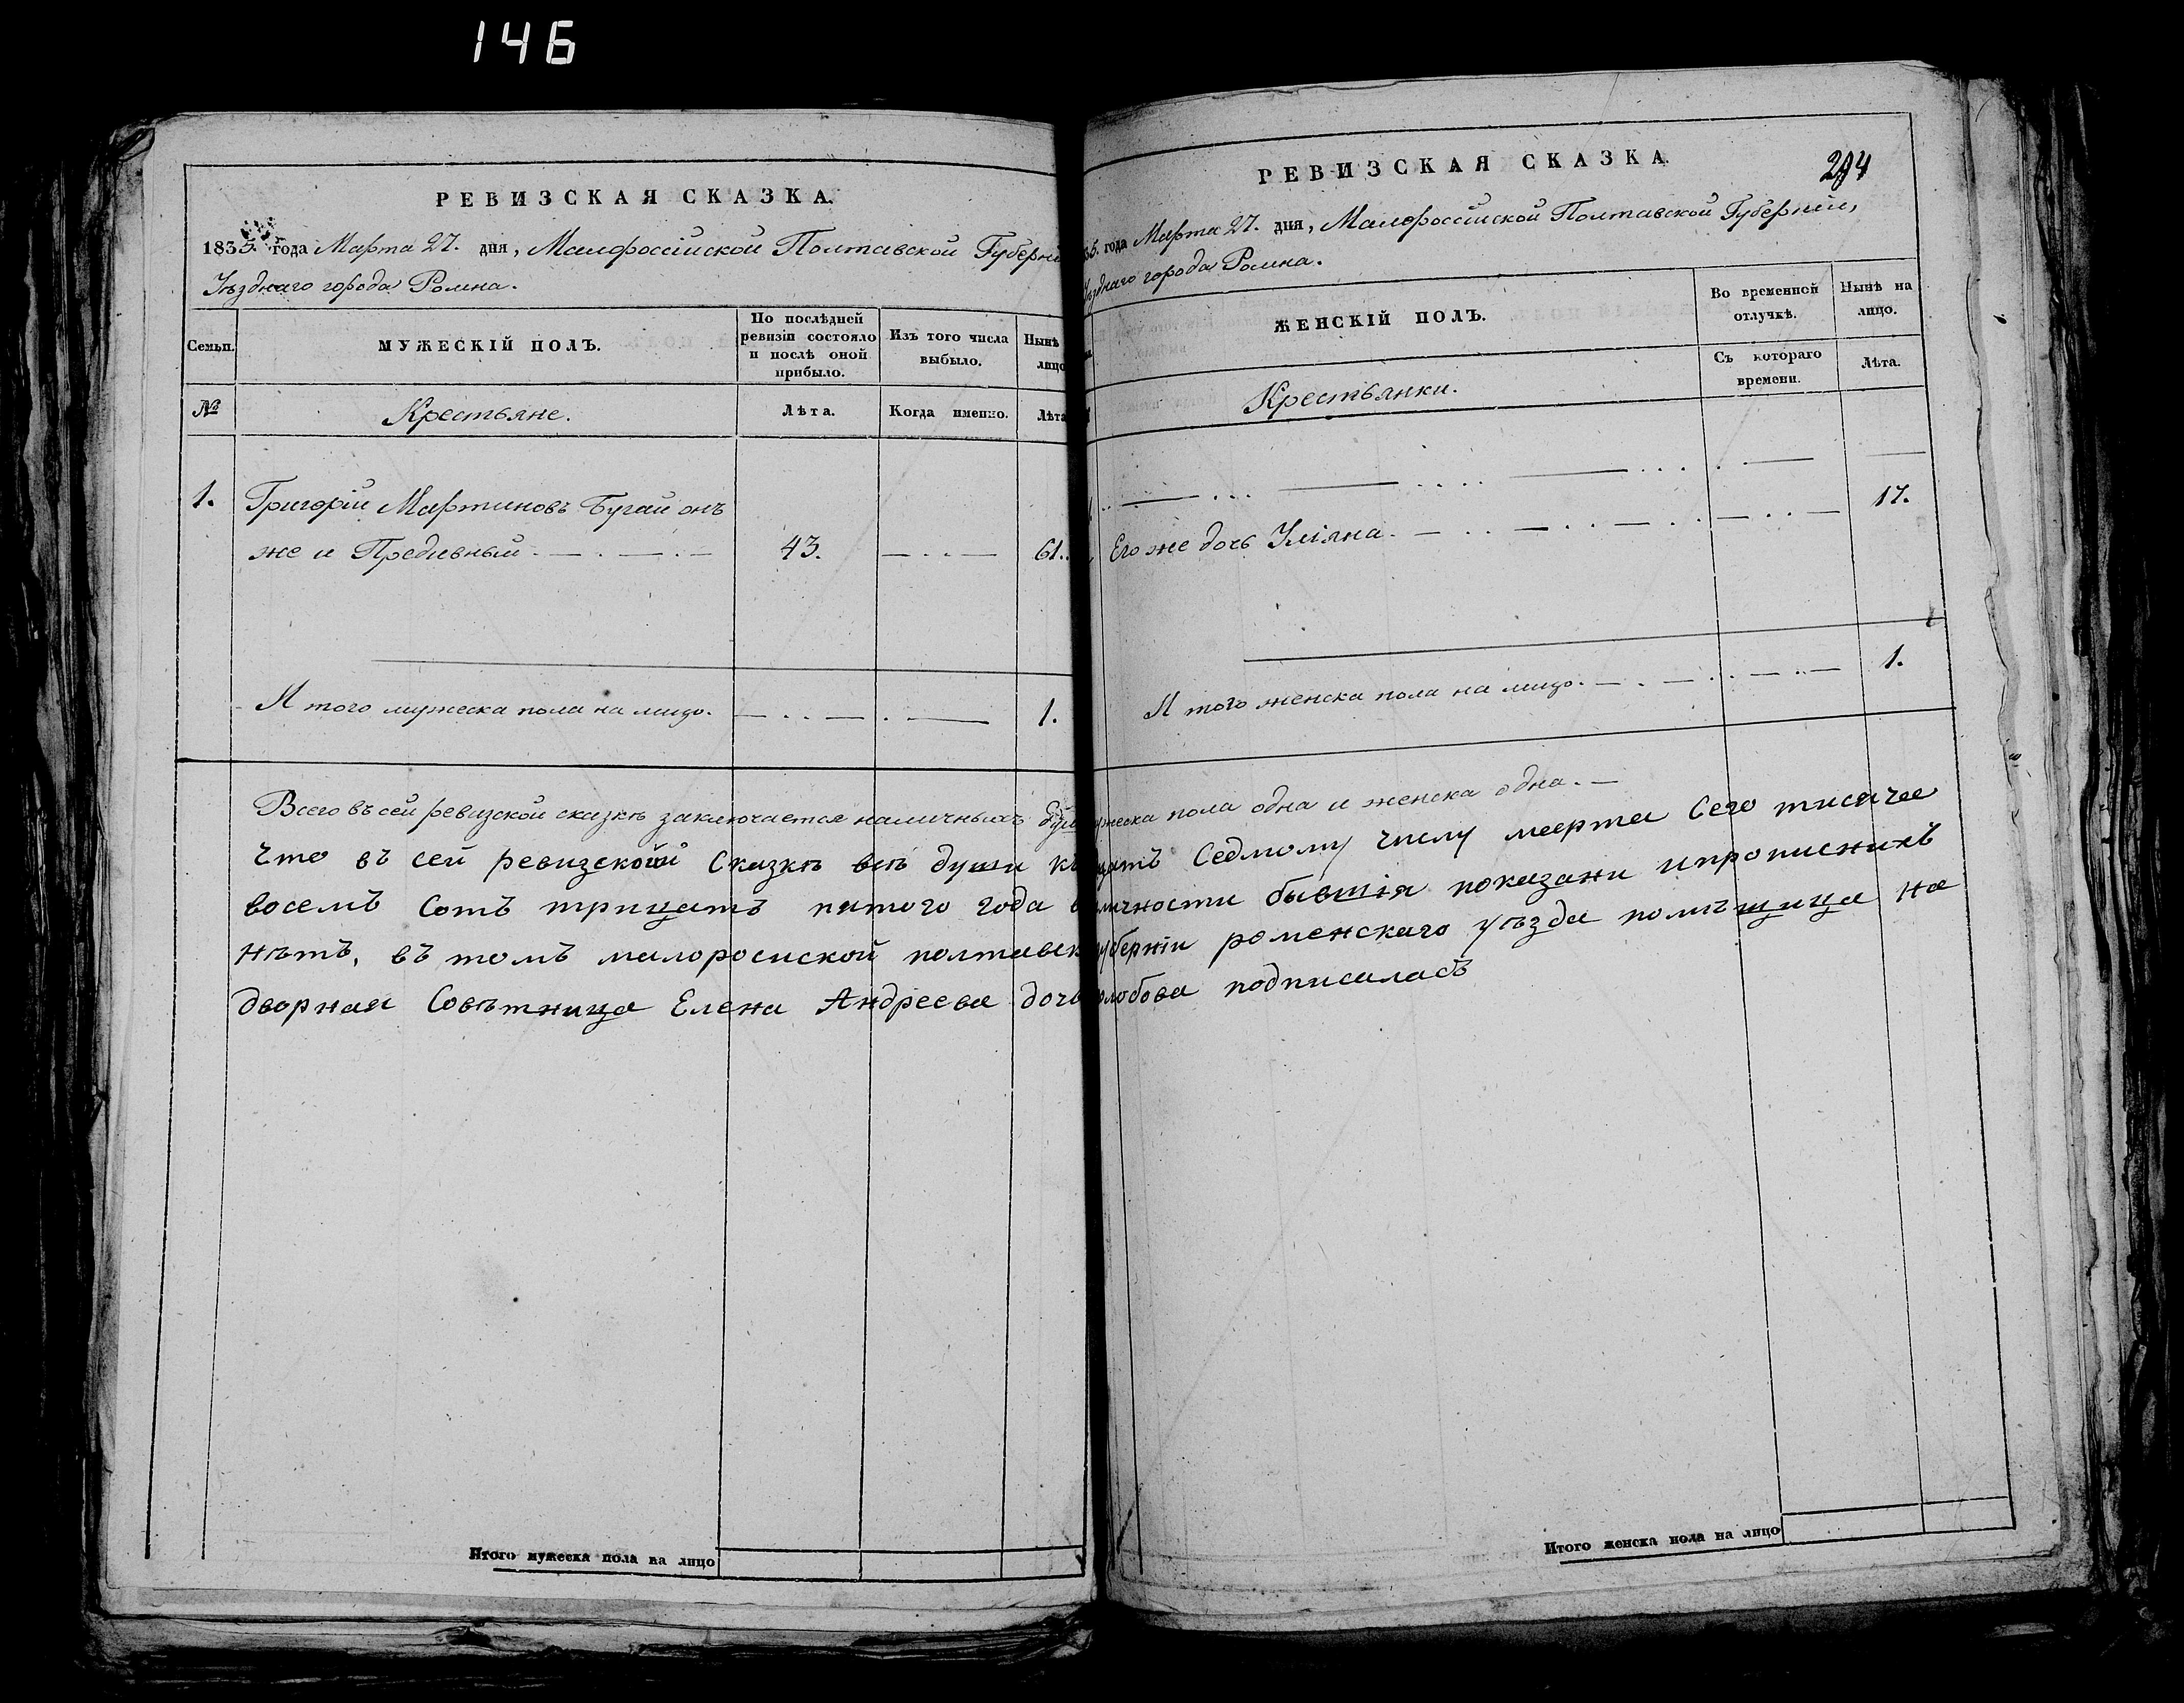 146
РЕВИЗСКАЯ СКАЗКА.
1835. года Марта 27. дня, Малороссійской Полтавской Губерніи
Уѣзднаго города Ромна.
Семьи.
МУЖЕСКІЙ ПОЛЪ.
По послѣдней ревизіи состояло и послѣ оной прибыло.
Изъ того числа выбыло.
Нынѣ лицо
№
Крестьяне.
Лѣта.
Когда именно.
Лѣта
1.
Григорій Мартиновъ Бугай онъ
же и Предивный 43. 61.
И того мужеска пола на лицо. 1.
Всего въ сей ревизской сказкѣ заключается наличныхъ
Что въ сей ревизской Сказкѣ всѣ души
восемъ Сотъ трицатъ пятого года
нѣтъ, въ томъ малоросиской полтавск
дворная Совѣтница Елена Андреева дочь
Итого мужеска пола на лицо
РЕВИЗСКАЯ СКАЗКА
204
35. года Марта 27. дня, Малороссійской Полтавской Губерніи,
Уѣзднаго города Ромна.
ЖЕНСКІЙ ПОЛЪ.
Во временной отлучкѣ.
Нынѣ на лицо.
Крестьянки.
Съ котораго времени.
Лѣта.
Его же дочь Уліяна. 17.
И того женска пола на лицо. 1.
жеска пола одна и женска одна.
цать Седмому числу марта Сего тисяче
личности бывшія показани ипрописнихъ
уберніи роменскаго уѣзда помѣщица на
олюбова подписаласъ
Итого женска пола на лицо